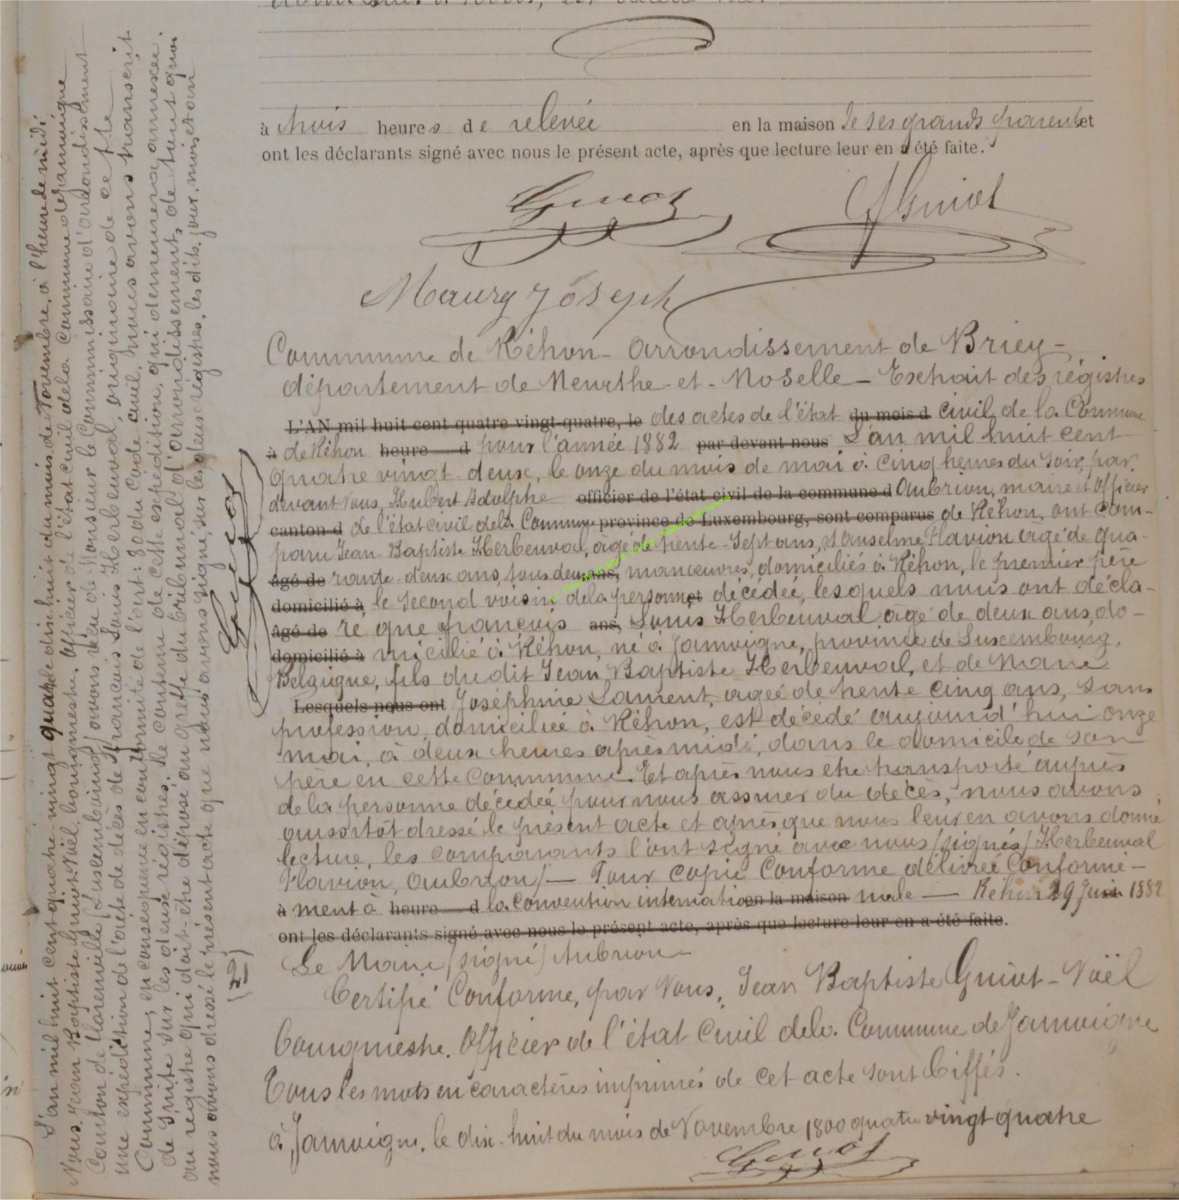 à trois heures de relevée en la maison de ses grands parents et
ont les déclarants signé avec nous le présent acte, après que lecture leur en a été faite.
Guiot
Guiot
Maury Joseph
Commune de Réhon - arrondissement de Briey -
département de Meurthe - et - Moselle - Extrait des régistres
L'AN mil huit cent quatre vingt-quatre, le des actes de l'état du mois d civil de la Commune
à de Réhon heure d pour l'année 1882 par devant nous L'an mil huit cent
quatre vingt-deux, le onze du mois de mai à cinq heures du soir, par
devant nous, Hubert Adolphe officier de l'état civil de la commune d Aubrion, maire et officier
canton d de l'état civil de la Commune province de Luxembourg, sont comparus de Réhon, ont com-
paru Jean-Baptiste Herbeuval, âgé de trente-sept ans, et Anselme Flavion âgé de qua-
âgé de rante-deux ans, tous deux ans, manœuvres, domiciliés à Réhon, le premier père
domicilié à le second voisin de la personne et décédée, lesquels nous ont décla-
âgé de ré que françois ans, Louis Herbeuval âgé de deux ans, do-
domicilié à micilié à Réhon, né à Jamoigne, province de Luxembourg,
Belgique, fils du dit Jean Baptiste Herbeuval, et de Marie
Lesquels nous ont Joséphine Laurent, agée de trente cinq ans, sans
profession, domiciliée à Réhon, est décédé aujourd'hui onze
mai, à deux heures après midi, dans le domicile de son
père en cette commune. Et après nous être transporté auprès
de la personne décédée pour nous assurer du décès, nous avons
aussitôt dressé le présent acte et après que nous leur en avons donné
lecture, les comparants l'ont signé avec nous (signés) Herbeuval
Flavion, Aubrion/- Pour copie Conforme délivrée Conformé-
à ment à heure d la convention internatio en la maison nale - Réhon 29 Juin 1882
ont les déclarants signé avec nous le présent acte, après que lecture leur en a été faite.
Le Maire (signé) Aubrion
Certifié Conforme, par Nous, Jean Baptiste Guiot-Noël
bourgmestre. Officier de l'état Civil de la Commune de Jamoigne
Tous les mots en caractères imprimés de cet acte sont biffés.
à Jamoigne, le dix-huit du mois de Novembre 1800 quatre vingt quatre
Guiot
L'an mil huit cent quatre vingt quatre dix huit du mois de Novembre, à l'heure de midi
Nous, Jean Baptiste Guiot-Noël, bourgmestre, officier de l'état civil de la commune de Jamoigne
Canton de Florenville (Luxembourg) avons reçu de Monsieur le Commissaire d'arrondissement
une expédition de l'acte de décès de François Louis Herbeuval, originaire de cette
Commune, en conséquence en conformité de l'art: 80 du Code civil, nous avons transcrit
de suite sur les deux régistres, le contenu de cette expédition, qui demeurera annexée
au registre qui doit être déposé au greffe du tribunal d'arrondissement, de tout quoi
nous avons dressé le présent acte que nous avons signé, sur les deux régistres, les dits jour, mois et an
Guiot